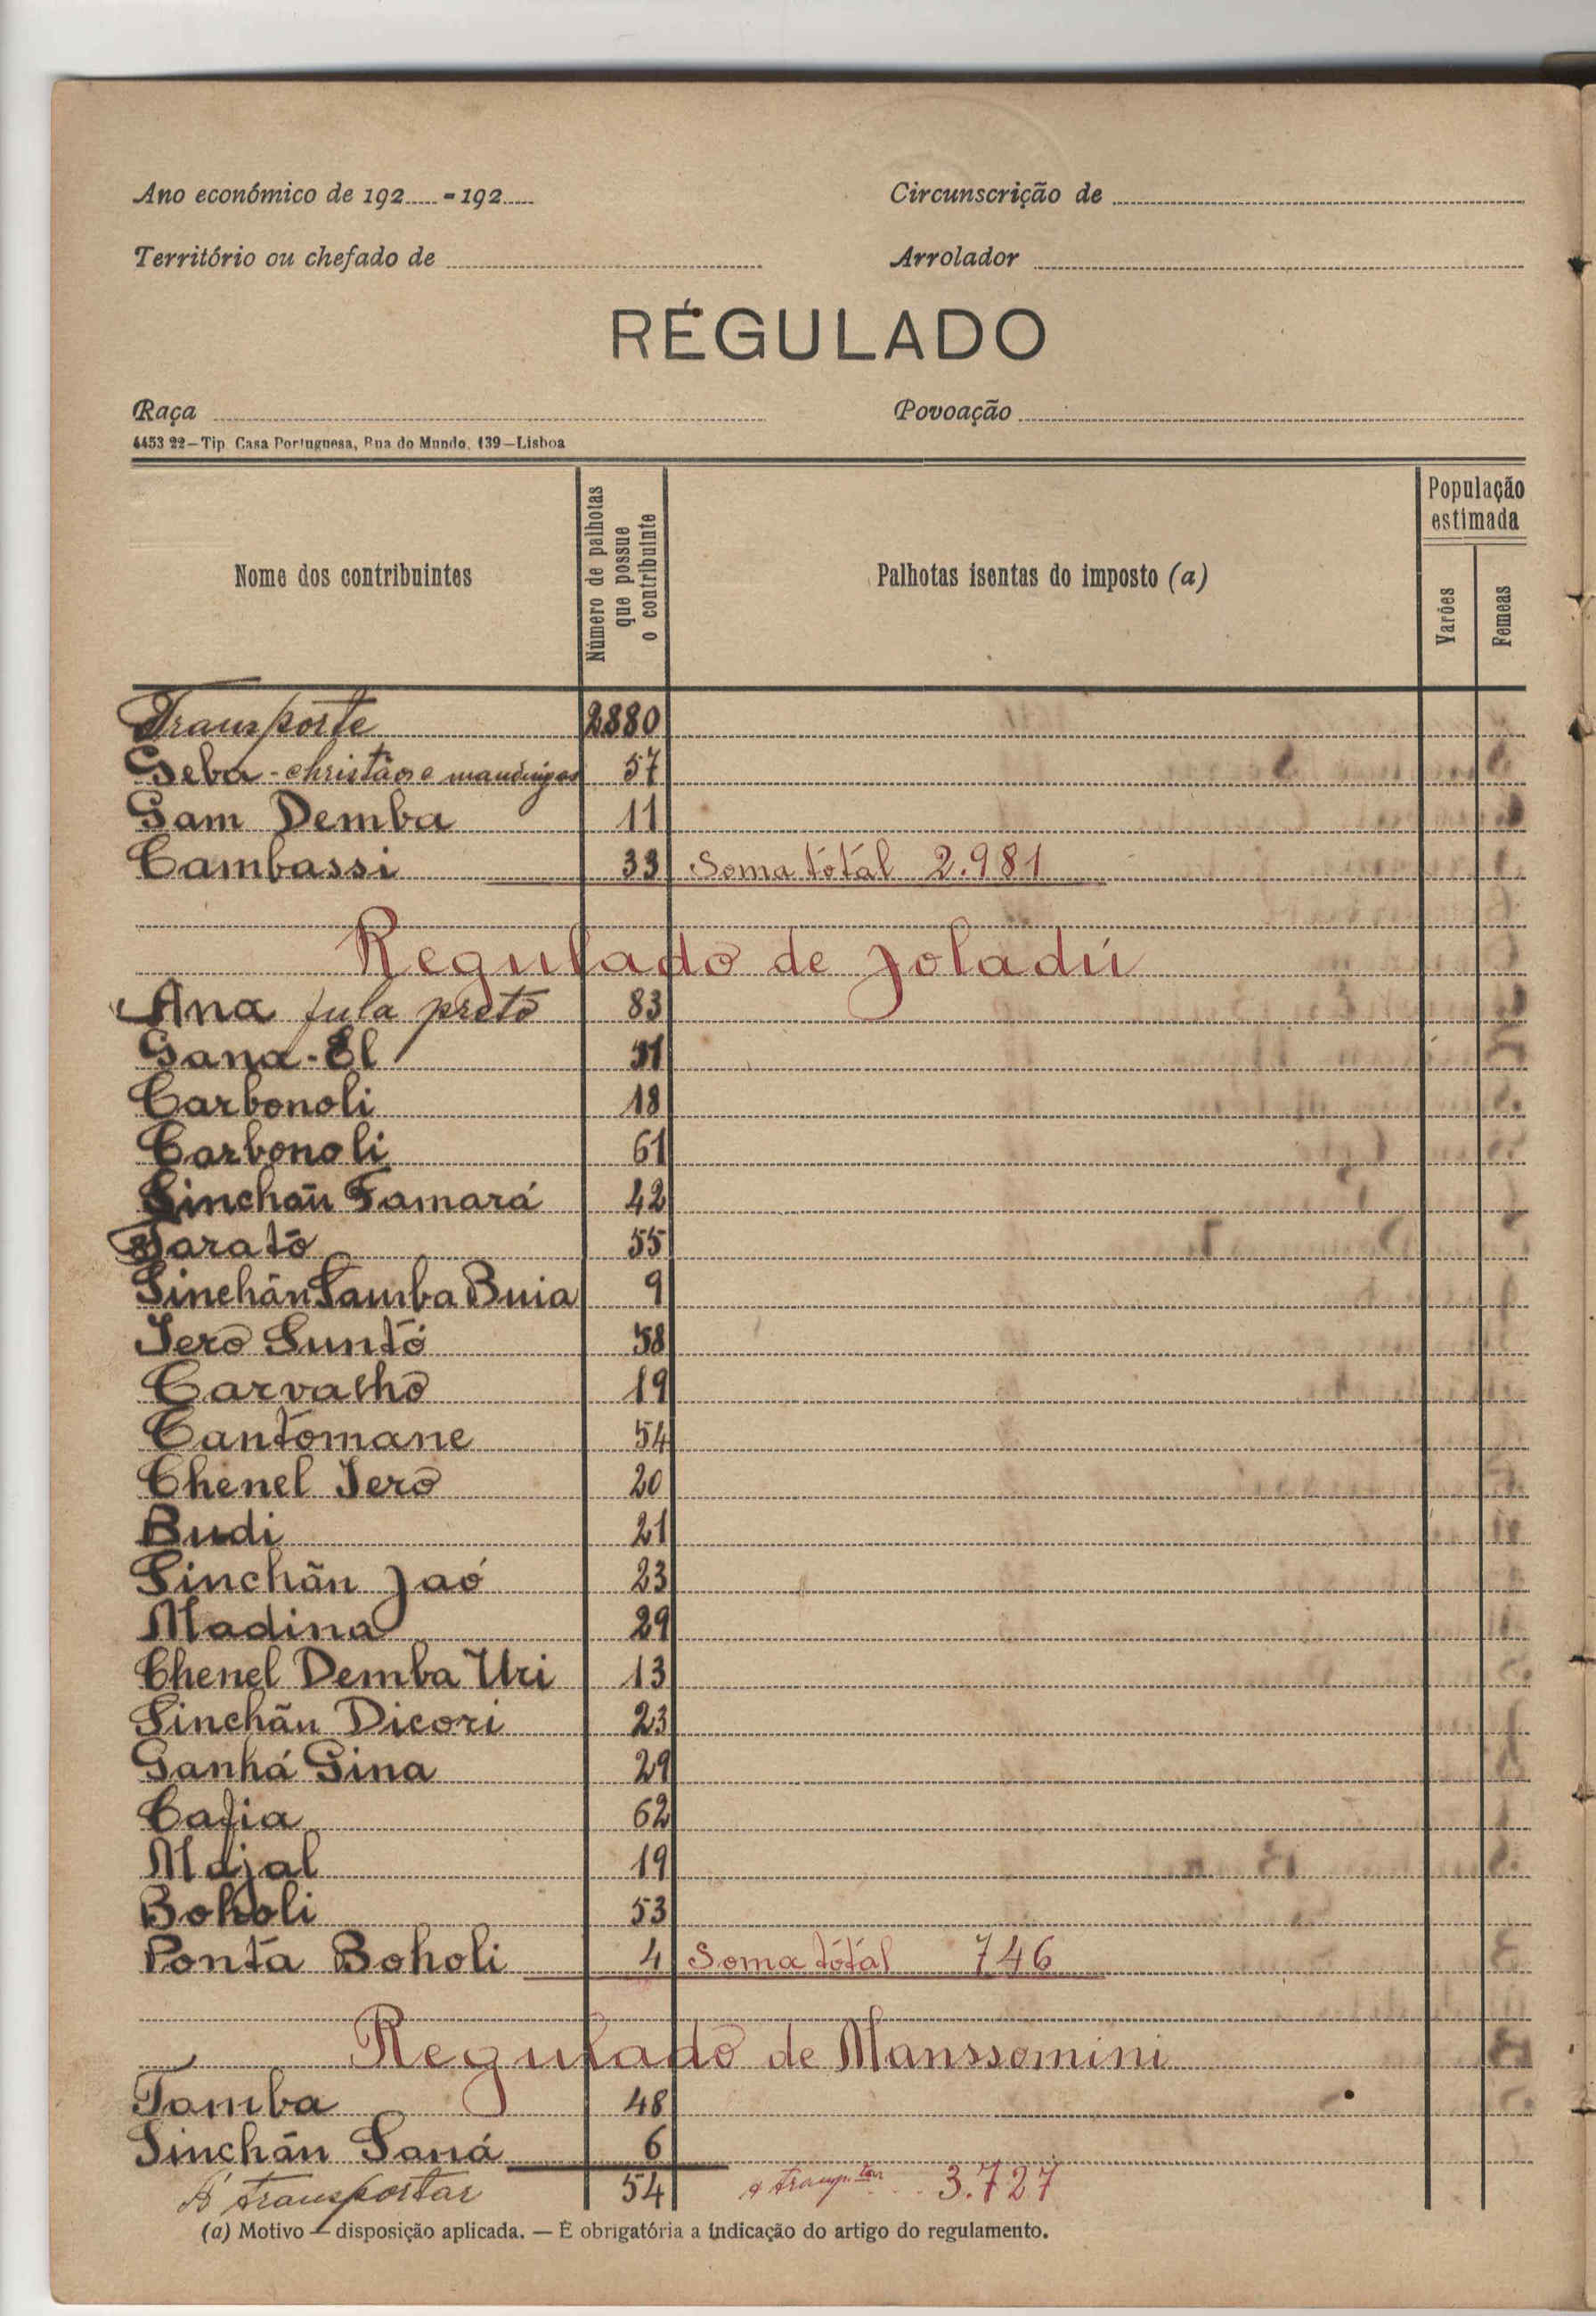 Ano económico de 192..... - 192..... Circunscrição de
Território ou chefado de Arrolador
RÉGULADO
Raça Povoação
4453 22—Tip. Casa Portuguesa, Rua do Mundo, 139—Lisboa
Nome dos contribuintes
Número de palhotas que possue o contribuinte
Palhotas isentas do imposto (a)
População estimada
Varões
Femeas
Transporte 2880
Geba - christãos e mandingas 57
Gam Demba 11
Cambassi 33 Soma totál 2.981
Regulado de Joladú
Ana fula preto 83
Gana-El 51
Carbonoli 18
Carbonoli 61
Sinchãn Tamará 42
Saratô 55
Sinchãn Samba Buia 9
Jero Suntó 58
Carvalho 19
Cantomane 54
Chenel Jero 20
Budi 21
Sinchãn Jaó 23
Madina 29
Chenel Demba Uri 13
Sinchãn Dicori 23
Ganhá Gina 29
Cafia 62
Májal 19
Boholi 53
Ponta Boholi 4 Soma totál 746
Regulado de Manssomini
Tamba 48
Sinchãn Saná 6
A transportar 54 a transptar 3.727
(a) Motivo — disposição aplicada. — É obrigatória a indicação do artigo do regulamento.